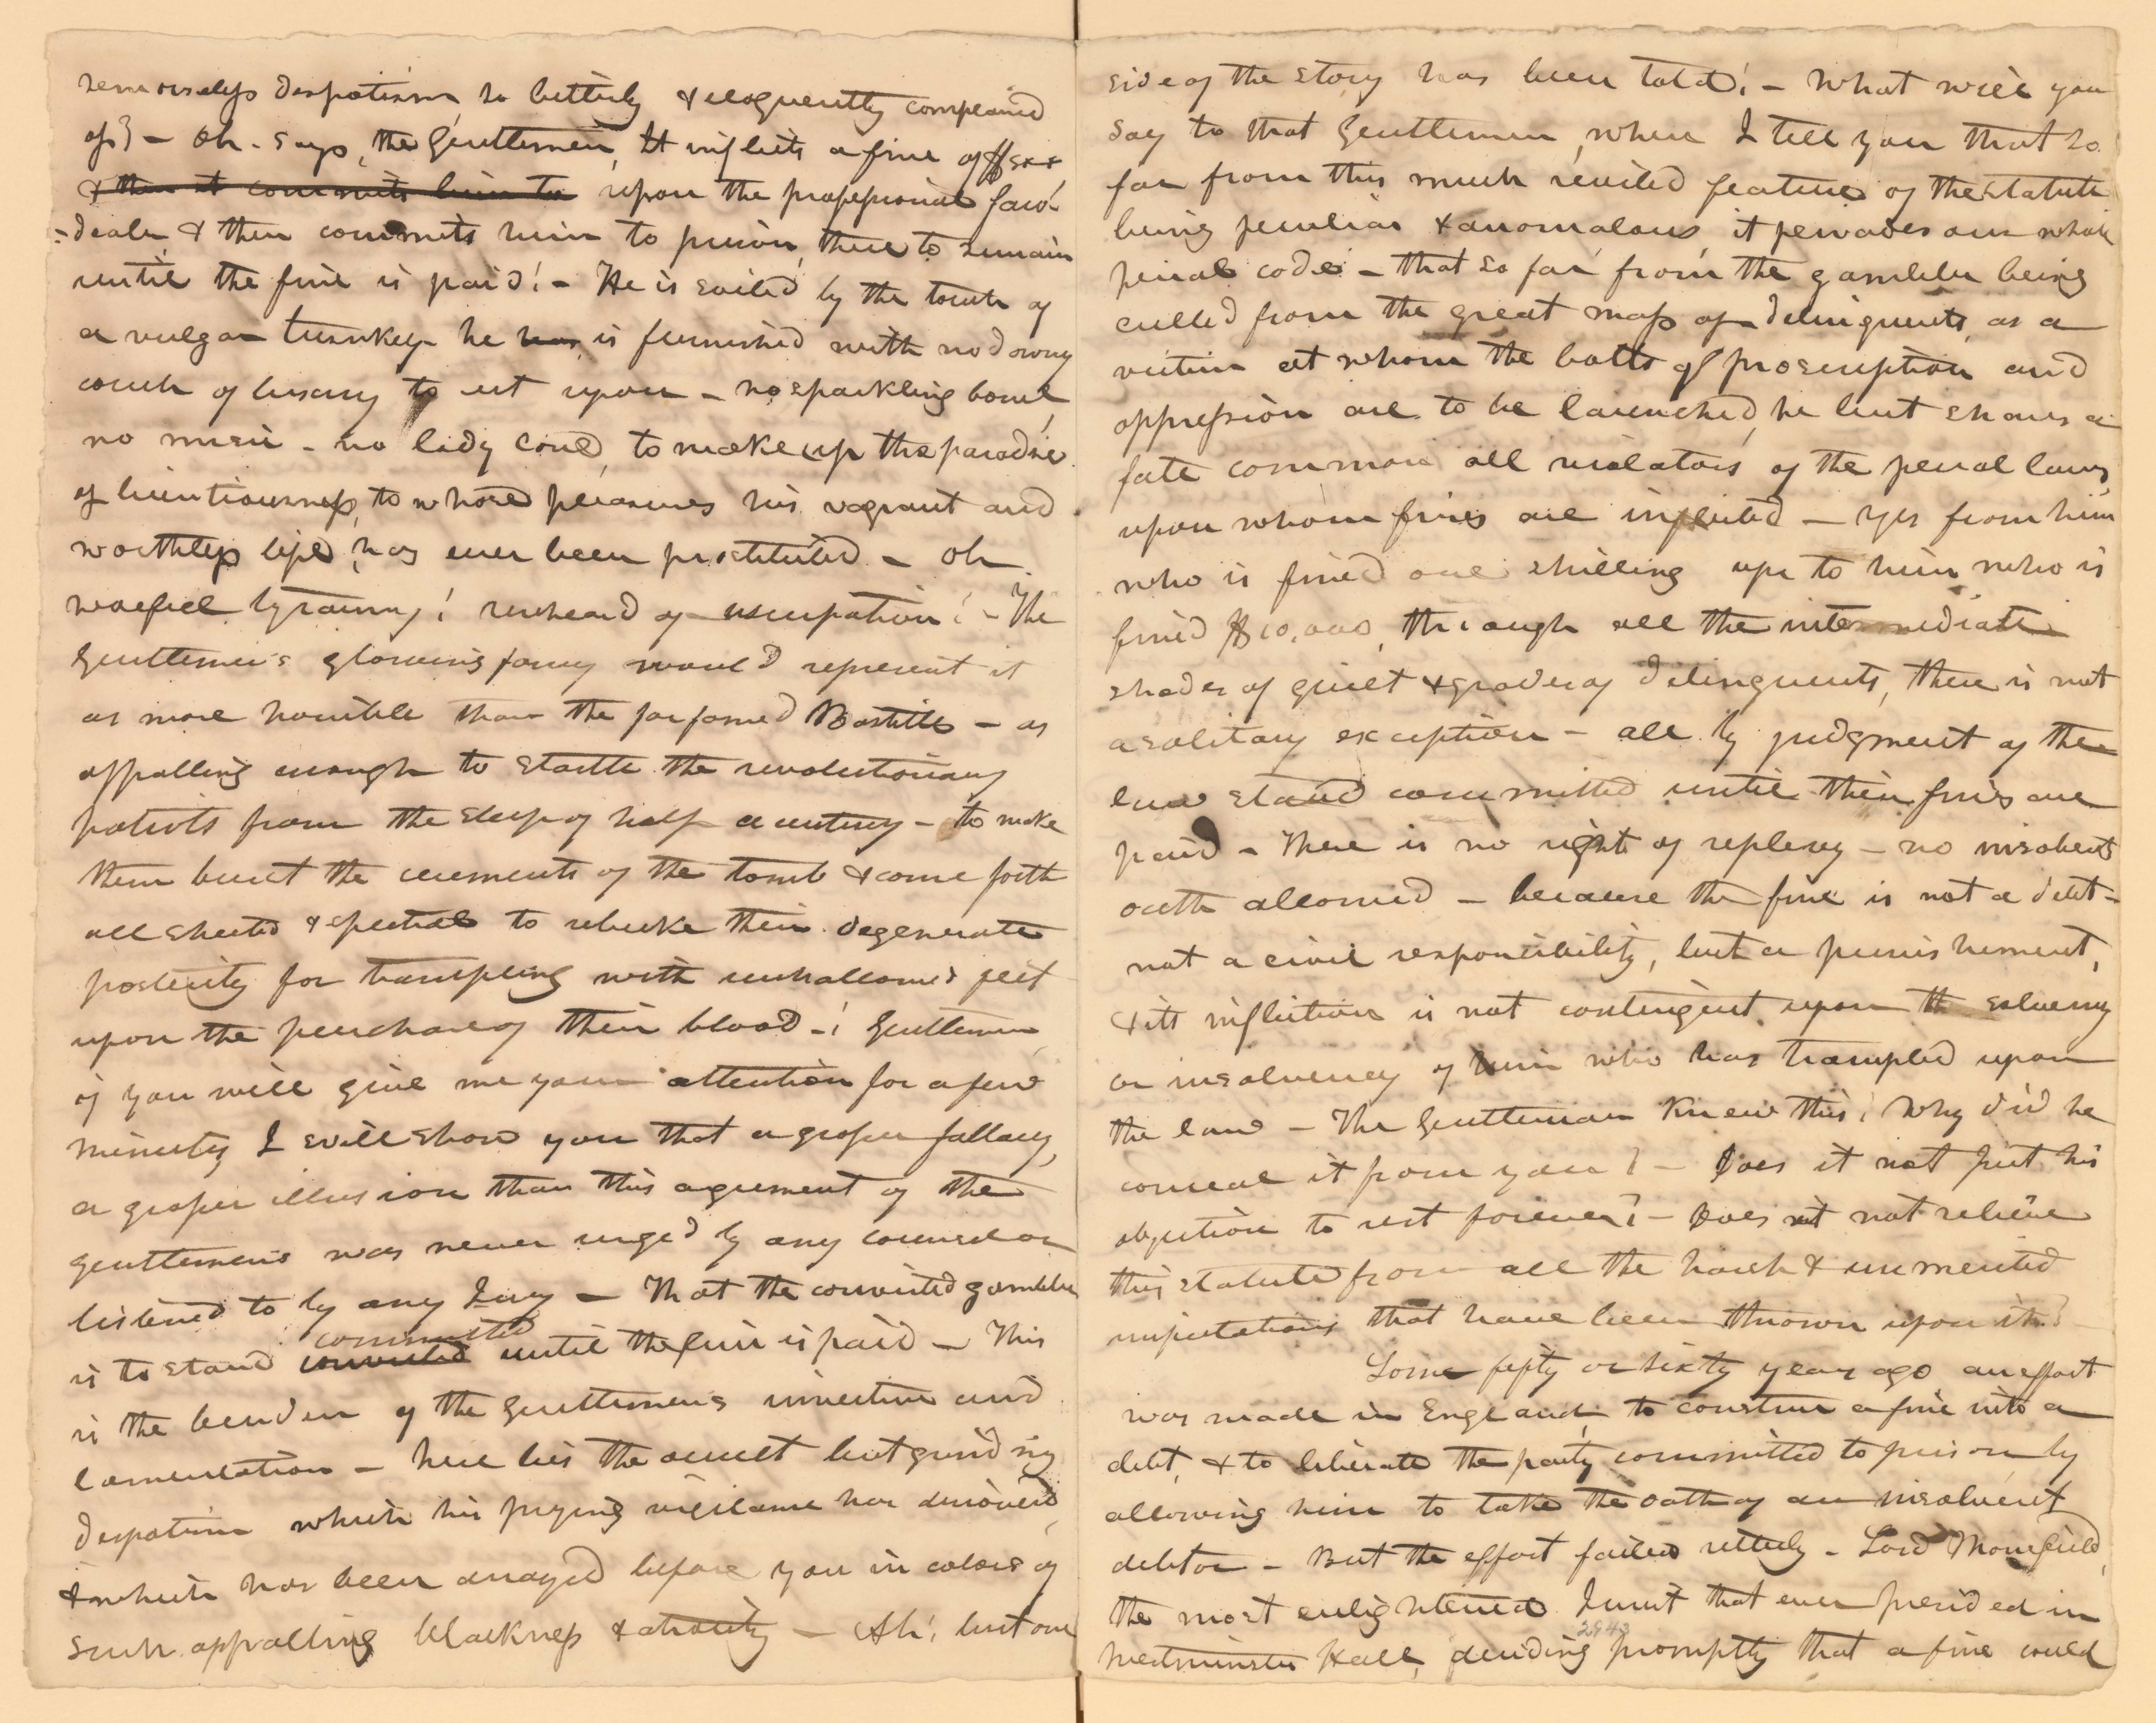 remorseless despotism so bitterly & eloquently complained
of? - Oh - says, the Gentleman, It inflicts a fine of
& then it commits him to upon the professional faro-
-dealer & then commits him to prison, there to remain
until the fine is paid! - He is soiled by the touch of
a vulgar turnkey - he has is furnished with no downy
couch of luxury to rest upon - no sparkling bowl,
no music - no lady to make up the paradise
of licentiousness, to whose pleasures his vagrant and
worthless life, has ever been prostituted - oh
woeful tyranny! unheard of usurpation! - The
Gentleman's glowing fancy would represent it
as more horrible than the far famed Bastille - as
appalling enough to startle the revolutionary
patriots from the sleep of half a century - to make
them burst the cerements of the tomb & come forth
all sheeted & spectral to rebuke their degenerate
posterity for trampling with unhallowed feet
upon the purchase of their blood -! Gentlemen
if you will give me your attention for a few
minutes, I will show you that a grosser fallacy,
a grosser illusion than this argument of the
gentleman's was never urged by any counsel or
listened to by any Jury - That the convicted gambler
committed
is to stand convicted until the fine is paid - This
is the burden of the Gentleman's invective and
lamentation - here lies the secret but grinding
despotism which his prying vigilance has discovered,
& which has been arrayed before you in colors of
such appalling blackness & atrocity - Ah! but one
side of the story has been told! - What will you
say to that Gentlemen, when I tell you that so
far from this much reviled feature of the statute
being peculiar & anomalous, it pervades our whole
penal code - that so far from the gambler being
culled from the great mass of delinquents, as a
victim at whom the bolts of proscription and
oppression are to be launched, he but shares a
fate common all violators of the penal laws,
upon whom fines are inflicted - Yes from him
who is fined one shilling up to him who is
fined $10,000, through all the intermediate
shades of guilt & grades of delinquents, there is not
a solitary exception - all by judgment of the
law stand committed until their fines are
paid - There is no right of replevy - no insolvent
oath allowed - because the fine is not a debt -
not a civil responsibility, but a punishment,
& its infliction is not contingent upon the solvency
or insolvency of him who has trampled upon
the law - The Gentleman knew this! Why did he
conceal it from you? - Does it not put his
objection to rest forever? - Does it not relieve
this statute from all the harsh & unmerited
imputations that have been thrown upon it?
Some fifty or sixty year ago an effort
was made in England, to construe a fine into a
debt, & to liberate the party committed to prison by
allowing him to take the oath of an insolvent
debtor - But the effort failed utterly - Lord Mansfield,
the most enlightened Jurist that ever presided in
2943
Westminster Hall, deciding promptly that a fine could